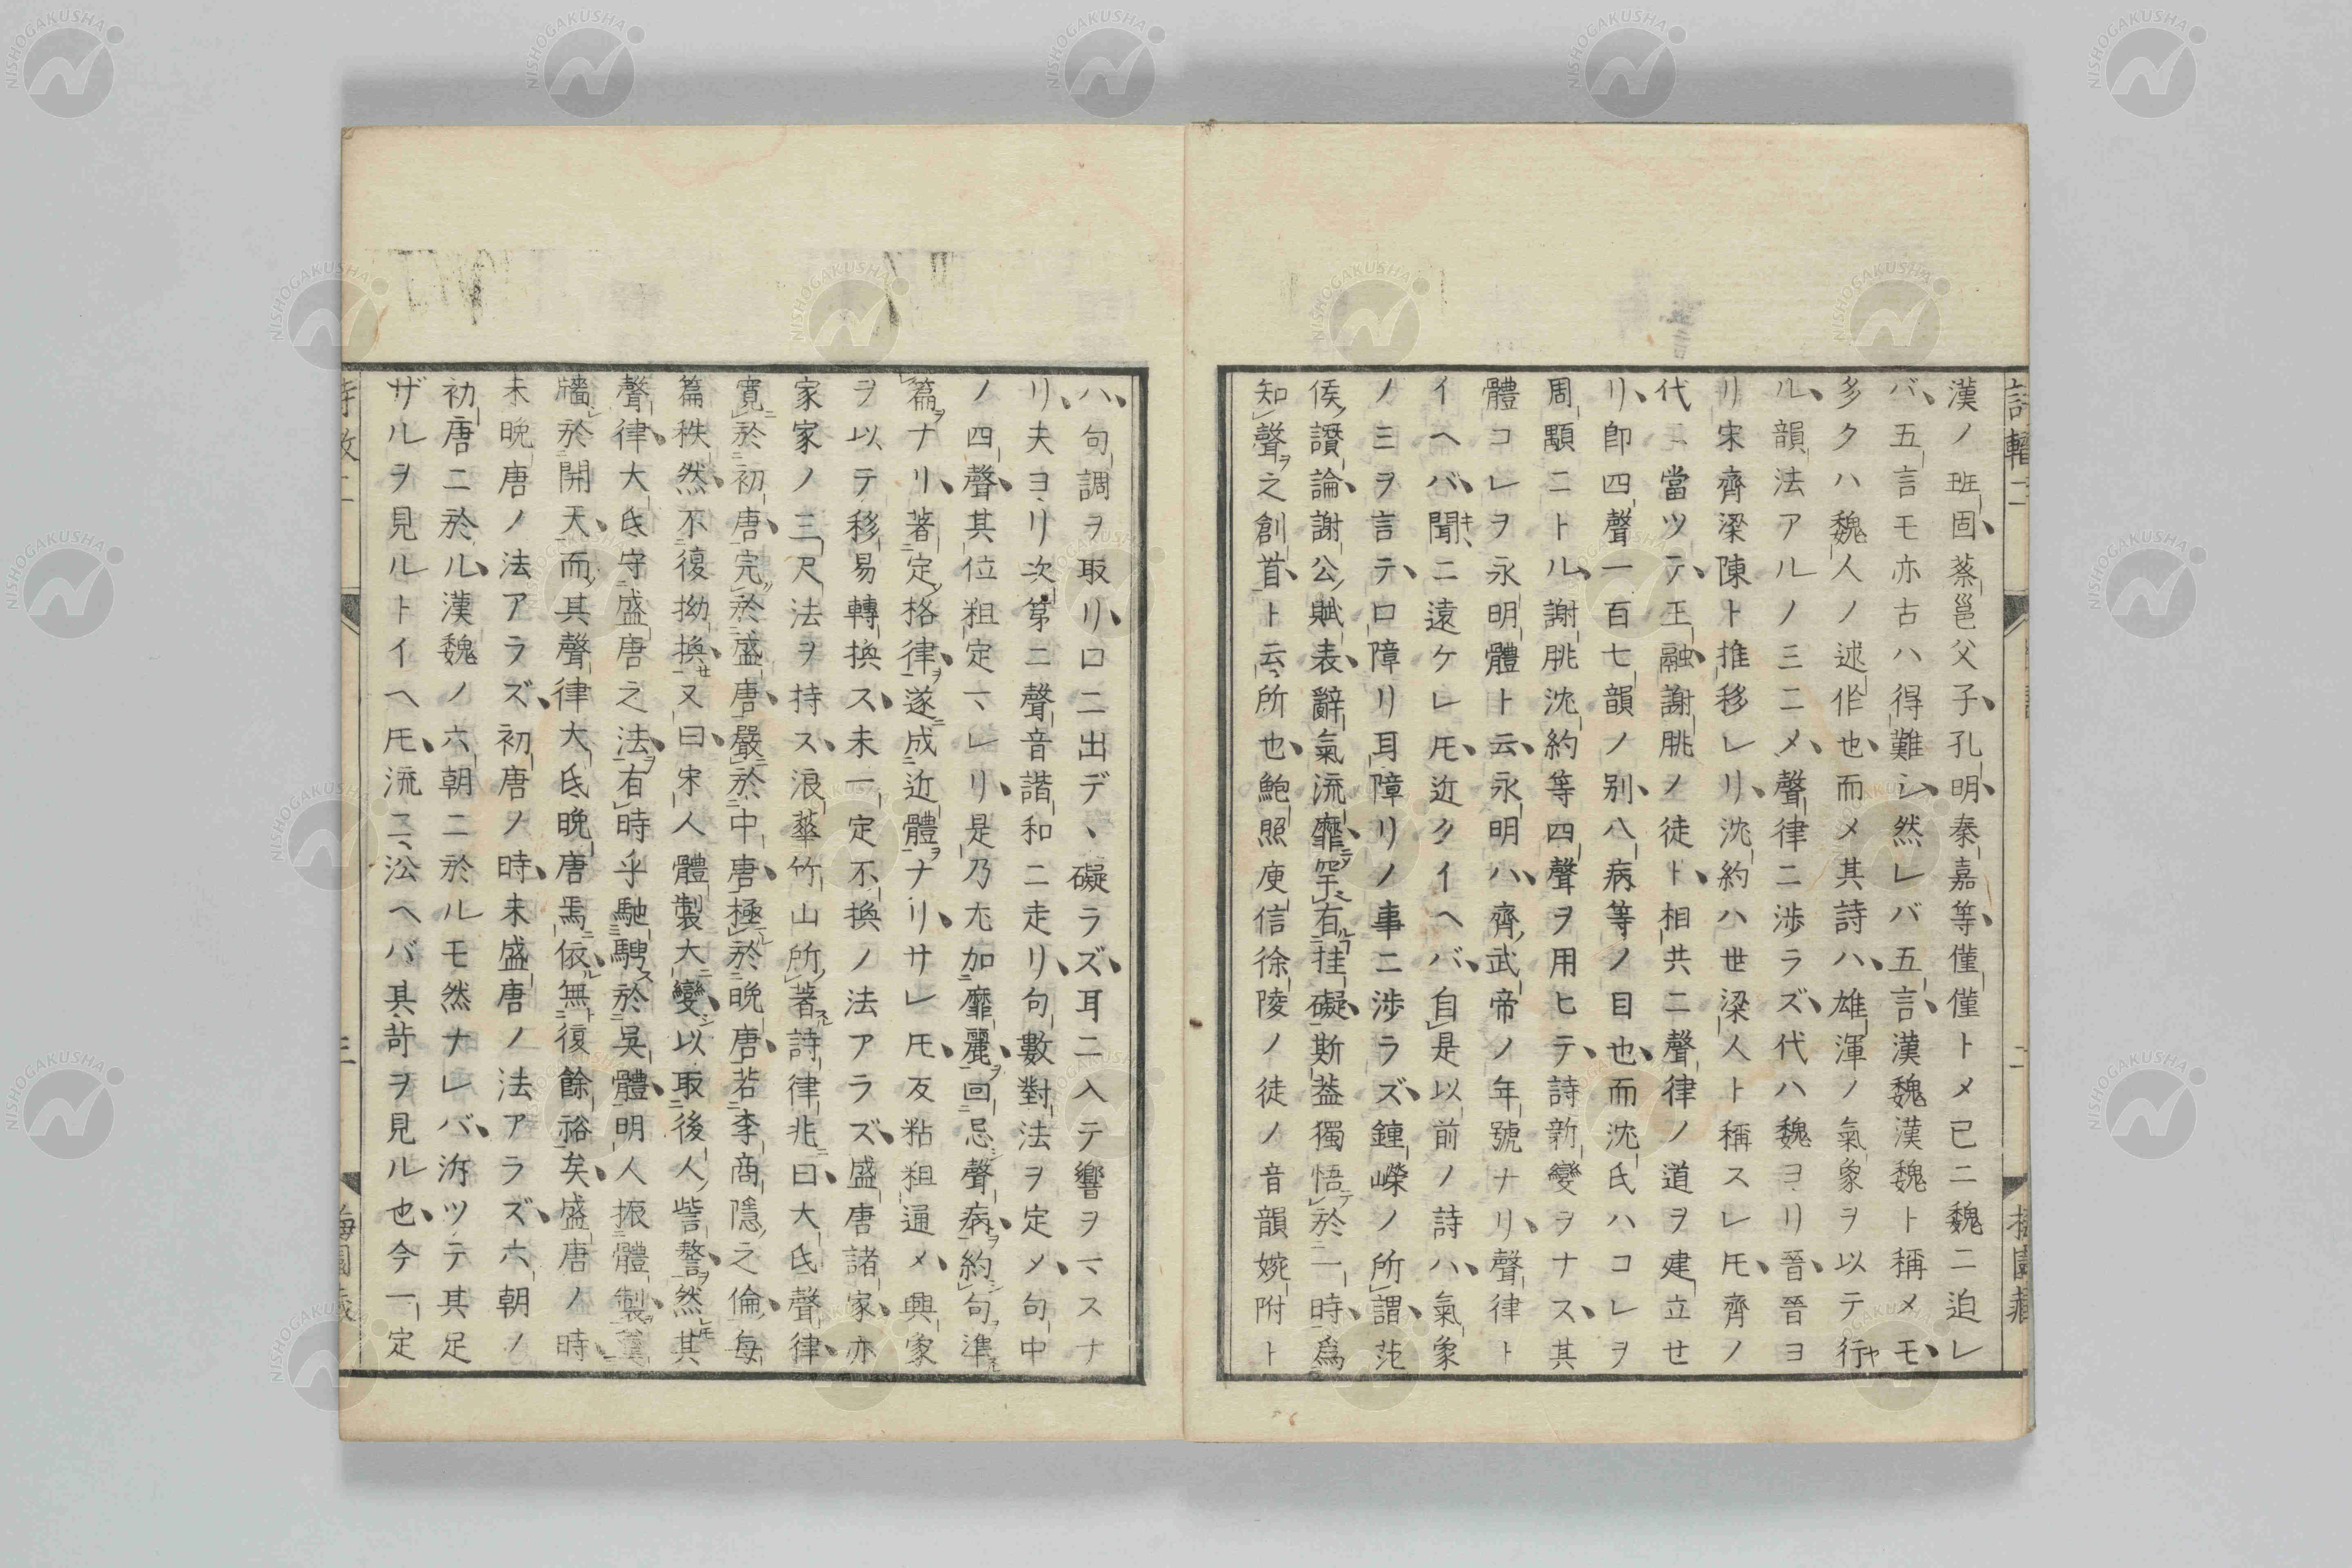 漢ノ班固、蔡邕父子、孔明、秦嘉等、僅僅トメ已ニ魏ニ迫レ
バ、五言モ亦古ハ得難シ、然レバ五言、漢魏漢魏ト稱メモ、
多クハ魏人ノ述作也、而メ其詩ハ、雄渾ノ氣象ヲ以テ行ヤ
ル、韻法アルノミニメ、聲律ニ渉ラズ、代ハ魏ヨリ晉、晉ヨ
リ宋齊梁陳ト推移レリ、沈約ハ世梁人ト稱スレ𪜈、齊ノ
代ニ當ツテ、王融、謝朓ノ徒ト、相共ニ聲律ノ道ヲ建立セ
リ、即四聲一百七韻ノ別、八病等ノ目也、而沈氏ハコレヲ
周顒ニトル、謝朓沈約等四聲ヲ用ヒテ、詩新變ヲナス、其
體コレヲ永明體ト云、永明ハ、齊ノ武帝ノ年號ナリ、聲律ト
イヘバ、聞キニ遠ケレ𪜈、近クイヘバ、自是以前ノ詩ハ、氣象
ノミヲ言テ、口障リ耳障リノ事ニ渉ラズ、鍾嶸ノ所謂、范
侯ノ讃論、謝公ノ賦表、辭氣流靡、罕有挂礙、斯蓋獨悟於一時、爲
知聲之創首、ト云、所也、鮑照庾信徐陵ノ徒ノ音韻婉附ト
ハ、句調ヲ取リ、口ニ出デヽ礙ラズ、耳ニ入テ響ヲマスナ
リ、夫ヨリ次第ニ聲音諧和ニ走リ、句數對法ヲ定メ、句中
ノ四聲、其位粗定マレリ、是乃尤加靡麗、回忌聲病、約句準
篇ナリ、著定格律、遂成近體ナリ、サレ𪜈、反粘粗通メ、興象
ヲ以テ移易轉換ス、未一定不換ノ法アラズ、盛唐諸家、亦
家家ノ三尺法ヲ持ス、浪華竹山所著詩律兆曰、大氐聲律、
寛於初唐、完於盛唐、嚴於中唐、極於晩唐、若李商隱之倫、毎
篇秩然、不復拗換、又曰、宋人體製大變、以取後人訾謷、然其
聲律、大氐守盛唐之法、有時乎馳騁於吳體、明人振體製、
牆於開天、而其聲律大氐晩唐焉依、無復餘裕矣、盛唐ノ時、
未晩唐ノ法アラズ、初唐ノ時、未盛唐ノ法アラズ、六朝ノ
初唐ニ於ル、漢魏ノ六朝ニ於ルモ然ナレバ、泝ツテ其足
ザルヲ見ルトイヘ𪜈、流ニ㳂ヘバ其苛ヲ見ル也、今一定